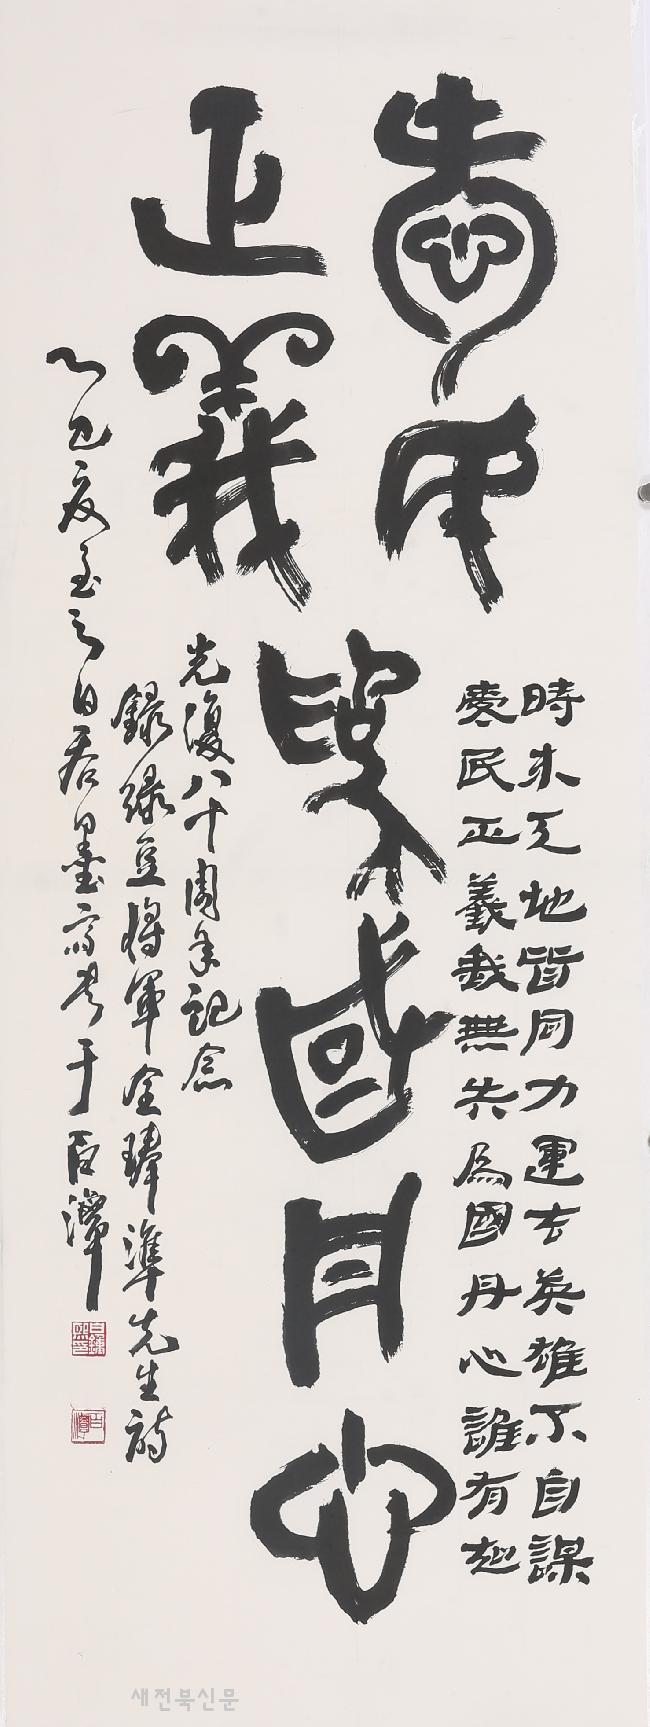 愛民
正義
爲國丹心
時來天地皆同力運去英雄不自謀
愛民正義我無失爲國丹心誰有知
光復八十周年記念
錄綠豆將軍全琫準先生詩
乙巳夏至之日 墨 于
새전북신문